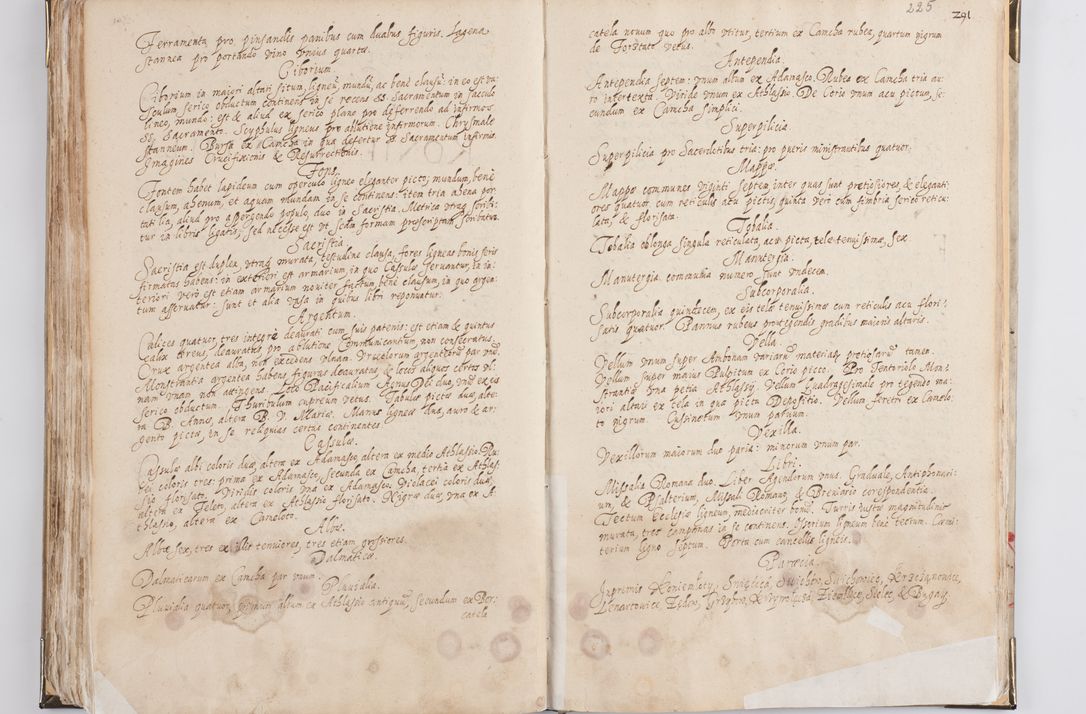 Ferramenta pro pinsandis panibus cum duabus figuris. Lagena
stannea pro portando vino vnius quartæ.
Ciborium.
Ciborium in maiori altari situm, ligneũ, mundũ, ac bene clausũ: in eo est va,
sculum serico obductum continens in se recens SS. Sacramentum in sacculo
lineo, mundo: est & aliud ex serico plano pro differendo ad infirmos
SS. Sacramento. Scyphulus ligneus pro ablutione infirmorum. Chrysmale
stanneum. Bursa ex Camcha in qua defertur SS Sacramentum infirmis.
Imagines Crucifixionis & Resurrectionis.
Fons.
Fontem habet lapideum cum operculo ligneo eleganter picto; mundum, bene
clausum, ahenum, et aquam mundam in se continens: item tria ahena por,
tatilia, aliud pro aspergendo populo, duo in Sacristia. Metrica vtraq scribi,
tur in libris ligatis, sed necesse est vt scdm formam prescriptam scribatur.
Sacristia.
Sacristia est duplex, vtraq murata, testudine clausa, fores ligneas bonis seris
firmatas habens: in exteriori est armarium in quo Casulæ seruantur, in in,
teriori vero est etiam armarium nouiter factum, bene clausum, in quo argen,
tum asseruatur: sunt et alia vasa in quibus libri reponuntur.
Argentum.
Calices quatuor, tres integre deaurati cum suis patenis: est etiam & quintus
calix cereus, deauratus, pro ablutione Communicantium, non consecratus.
Crux argentea alta, non excedens vlnam. Vrceolorum argenteorũ par vnũ.
Monstrantia argentea habens figuras deauratas, & locos aliquos circa vl,
nam vnam non attingens. Loco Pacificalium Agnus Dei duo, vnũ ex eis
serico obductum. Thuribulum cupreum vetus. Tabulæ pictæ duæ, alte,
ra B. Annæ, altera B. V. Mariæ. Manus ligneæ duæ, auro & ar,
gento pictæ, in se reliquias certas continentes.
Cassulæ.
Cassulæ albi coloris duæ, altera ex Adamasco, altera ex medio Athlassio. Ru,
bei coloris tres: prima ex Adamasco, secunda ex Camcha, tertia ex Athlas,
sio florisato. Viridis coloris vna ex Adamasco. Violacei coloris duæ,
altera ex Teleto, altera ex Athlassio florisato. Nigræ duæ, vna ex A,
thlassio, altera ex Cameloto.
Albæ.
Albæ sex, tres ex illis tenuiores, tres etiam grossiores.
Dalmaticæ.
Dalmaticarum ex Camcha par vnum.
Pluuialia.
Pluuialia quatuor, primum album ex Athlassio antiquũ, secundum ex Bor,
catela
225
291
catela nouum quo pro albo vtitur, tertium ex Camcha rubea, quartum nigrum
de Forstato vetus.
Antependia.
Antependia septem: vnum album ex Adamasco. Rubea ex Camcha tria au,
ro intertexta. Viride vnum ex Athlassio. De Corio vnum acu pictum, se,
cundum ex Camcha simplici.
Superpilicia.
Superpilicia pro Sacerdotibus tria: pro pueris ministrantibus quatuor.
Mappæ.
Mappæ communes viginti septem, inter quas sunt pretiosiores & eleganti,
ores quatuor cum reticulis acu pictis, quinta vero cum fimbria serico reticu,
lata, & florisata.
Tobalia.
Tobalia oblonga singula reticulata, acu picta, tele tenuissima, sex
Manutergia.
Manutergia communia numero sunt vndecim.
Subcorporalia.
Subcorporalia quindecim, ex eis telæ tenuissimæ cum reticulis acu flori,
satis quatuor. Pannus rubeus protegendis gradibus maioris altaris.
Vella.
Vellum vnum super Ambonam variarũ materiarũ pretiosarũ tamen.
Vellum super maius Pulpitum ex Corio picto. Pro Tentoriolo Mon,
strantiæ vna petia Athlassij. Vellum Quadragesimale pro tegendo ma,
iori altari ex tela in qua picta Depositio. Vellum feretri ex Camelo,
to nigrum. Cussinorum vnum paruum.
Vexilla.
Vexillorum maiorum duo paria: minorum vnum par.
Libri.
Missalia Romana duo. Liber Agendorum vnus. Graduale, Antiphonari,
um, & Psalterium, Missali Romano & Breuiario corespondentia.
Tectum Ecclesiæ ligneum, mediocriter bonũ. Turris iustæ magnitudinis
murata, tres campanas in se continens. Ossorium ligneum bene tectum. Cœmi,
terium ligno septum. Porta cum cancellis ligneis.
Parœcia.
Inprimis Koniemłoty,